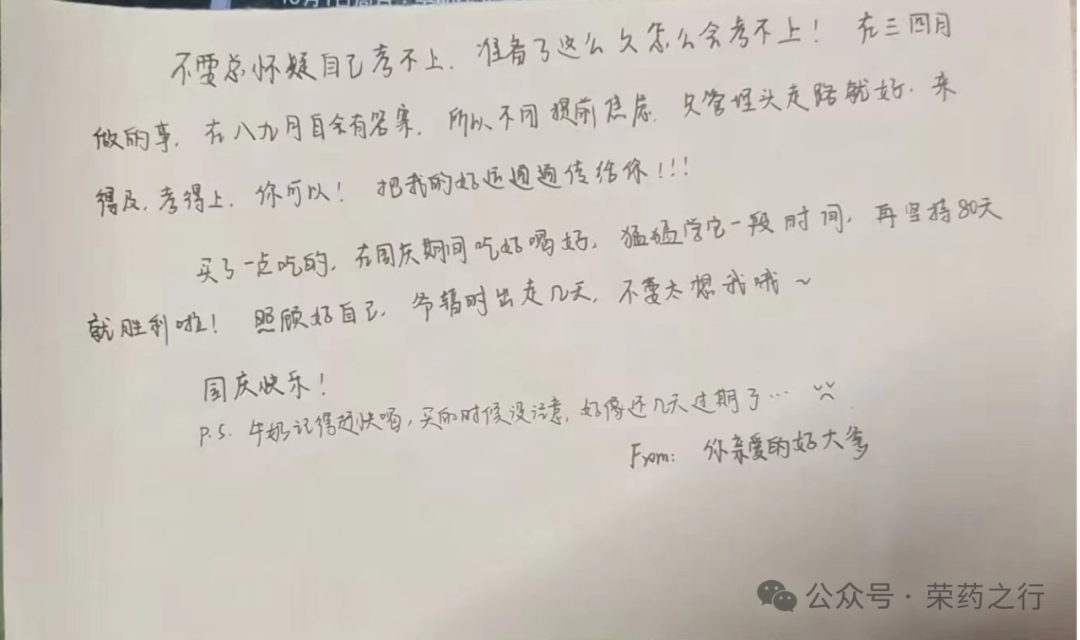 不要总怀疑自己考不上. 准备了这么久怎么会考不上! 在三四月
做的事, 在八九月自会有答案, 所以不用提前焦虑. 只管埋头走路就好. 来
得及, 考得上, 你可以! 把我的好运通通传给你!!!
买了一点吃的, 在国庆期间吃好喝好, 猛猛学它一段时间, 再坚持80天
就胜利啦! 照顾好自己, 爷暂时出走几天, 不要太想我哦~
国庆快乐!
P.S. 牛奶记得赶快喝, 买的时候没注意, 好像还几天过期了…
From: 你亲爱的好大爹
公众号·荣药之行